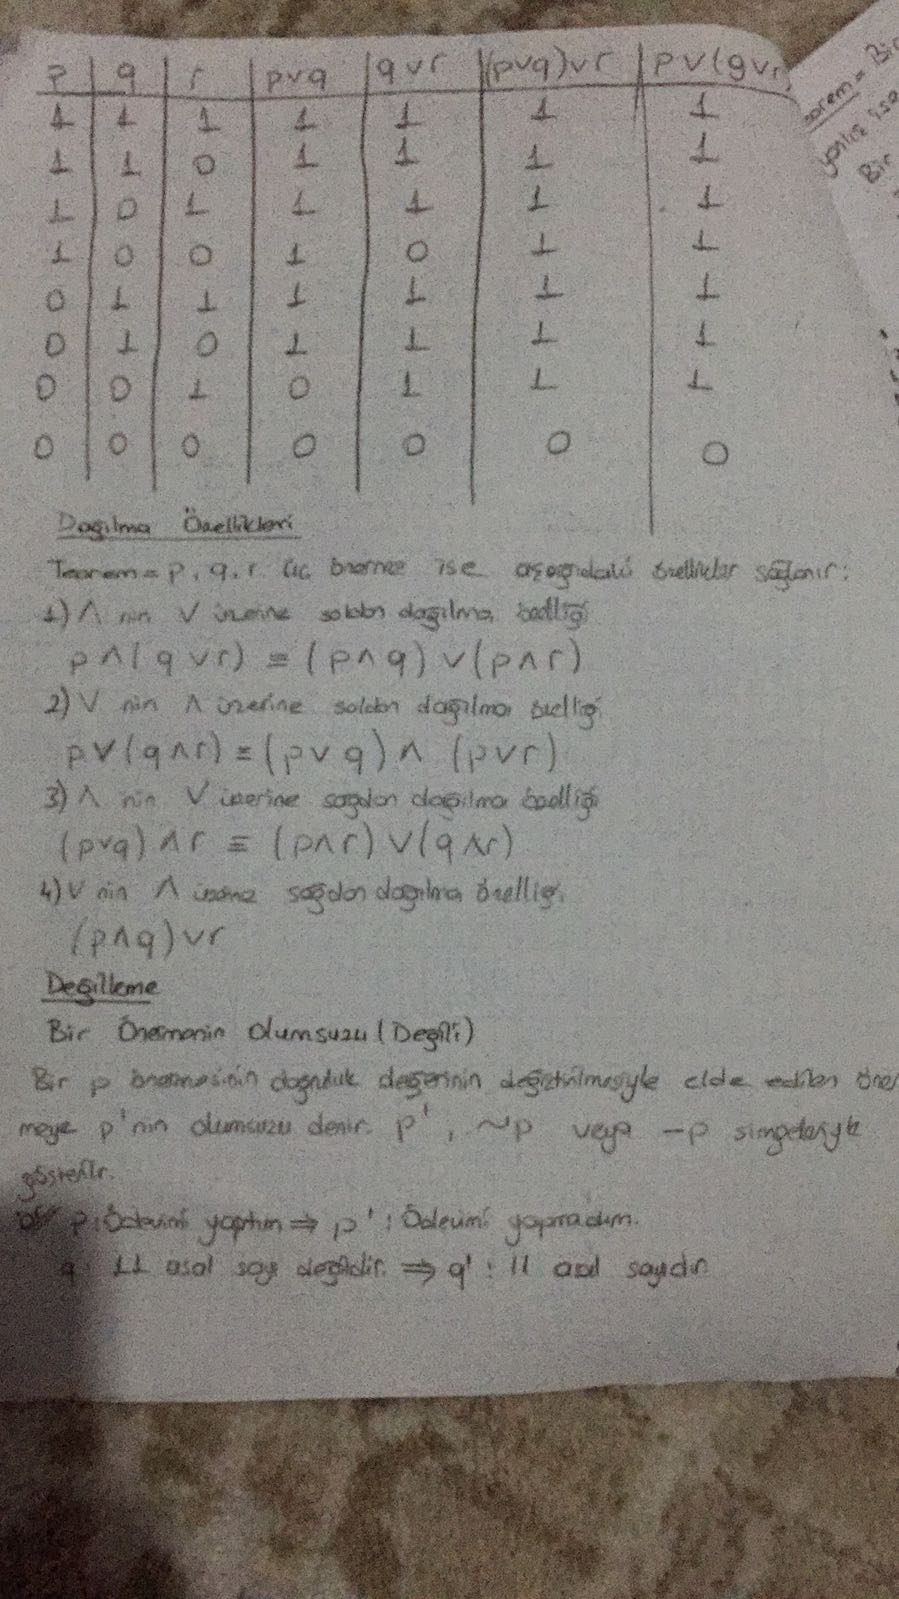 p q r pvq qvr (pvq)vr pv(qvr)
1 1 1 1 1 1 1
1 1 0 1 1 1 1
1 0 1 1 1 1 1
1 0 0 1 0 1 1
0 1 1 1 1 1 1
0 1 0 1 1 1 1
0 0 1 0 1 1 1
0 0 0 0 0 0 0
Dağılma Özellikleri
Teorem = p, q, r üç önerme ise aşağıdaki özellikler sağlanır:
1) ∧ nin ∨ üzerine soldan dağılma özelliği
p∧(q∨r) ≡ (p∧q)∨(p∧r)
2) ∨ nin ∧ üzerine soldan dağılma özelliği
p∨(q∧r) ≡ (p∨q)∧(p∨r)
3) ∧ nin ∨ üzerine sağdan dağılma özelliği
(p∨q)∧r ≡ (p∧r)∨(q∧r)
4) ∨ nin ∧ üzerine sağdan dağılma özelliği
(p∧q)∨r
Değilleme
Bir Önermenin Olumsuzu (Değili)
Bir p önermesinin doğruluk değerinin değiştirilmesiyle elde edilen öner
meye p'nin olumsuzu denir. p', ~p veya -p simgeleriyle
gösterilir.
p: Ödevimi yaptım ⇒ p': Ödevimi yapmadım.
q: 11 asal sayı değildir. ⇒ q': 11 asal sayıdır.
orem = Bir
yanlış ise
Bir